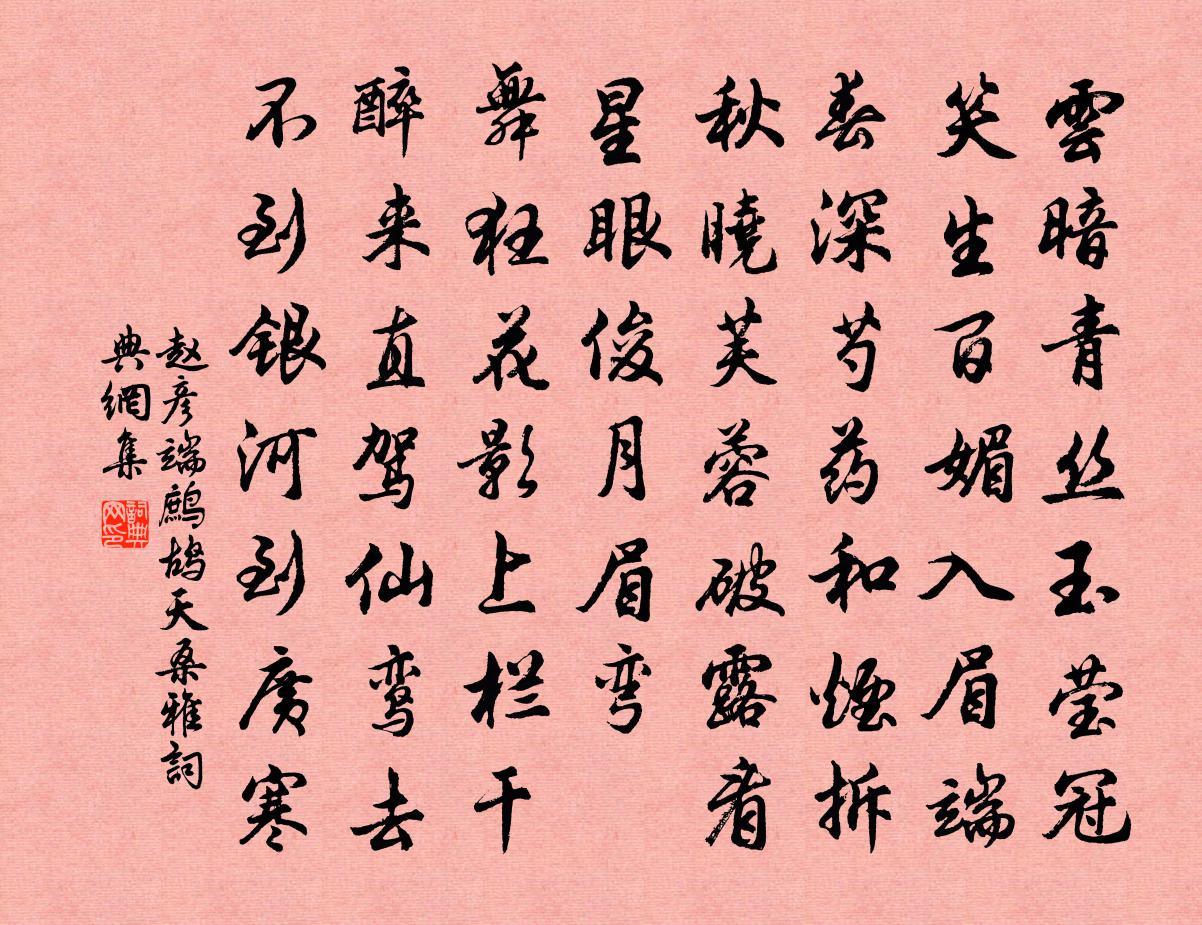 雲暗青丝玉莹冠
笑生百媚入眉端
春深芍药和煙拆
秋曉芙蓉破露看
星眼俊月眉弯
舞狂花影上栏干
醉来直驾仙鸾去
不到银河到广寒
赵彦端鹧鸪天桑雅詞
典網集
詞典网印